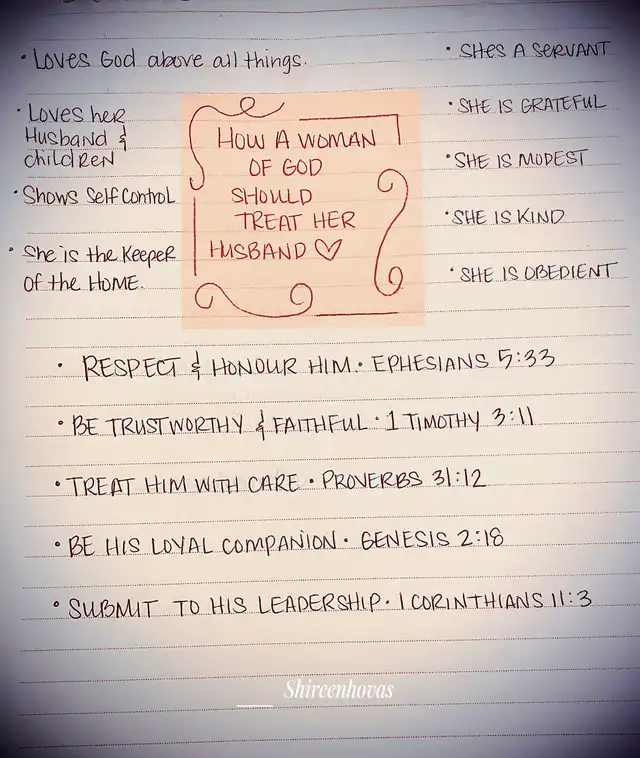 • Loves God above all things.
• Loves her
Husband &
children
• Shows Self Control
• She is the Keeper
of the HOME.
HOW A WOMAN
OF GOD
SHOULD
TREAT HER
HUSBAND ♡
• SHES A SERVANT
• SHE IS GRATEFUL
• SHE IS MODEST
• SHE IS KIND
• SHE IS OBEDIENT
• RESPECT & HONOUR HIM. EPHESIANS 5:33
• BE TRUSTWORTHY & FAITHFUL • 1 TIMOTHY 3:11
• TREAT HIM WITH CARE • PROVERBS 31:12
• BE HIS LOYAL COMPANION • GENESIS 2:18
• SUBMIT TO HIS LEADERSHIP • 1 CORINTHIANS 11:3
Shireenhovas